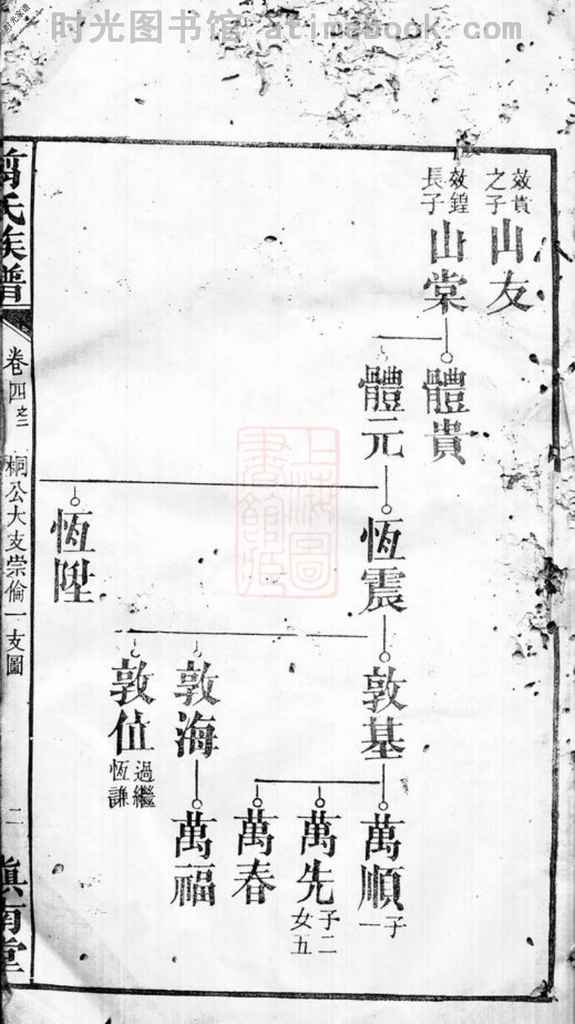 时光图书馆 - atimebook.com
效貴之子
山友
效鍠長子
山棠
體貴
體元
恆震
恆陞
敦基
敦海
敦值
過繼恆謙
萬順
子一
萬先
子二女五
萬春
萬福
氏族譜
卷四之二
桐公大支崇倫一支圖
二
上海圖書館藏